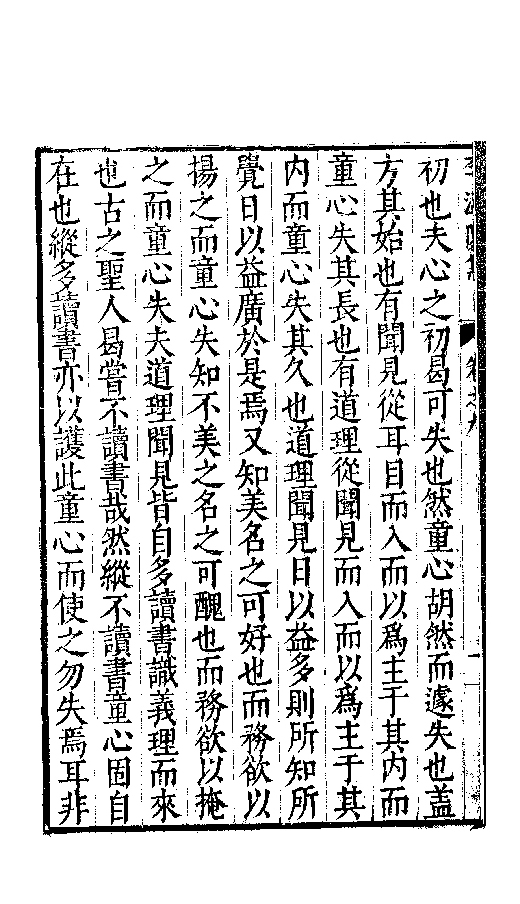 初也夫心之初曷可失也然童心胡然而遽失也盖
方其始也有聞見從耳目而入而以為主于其內而
童心失其長也有道理從聞見而入而以為主于其
內而童心失其久也道理聞見日以益多則所知所
覺日以益廣於是焉又知美名之可好也而務欲以
揚之而童心失知不美之名之可醜也而務欲以掩
之而童心失夫道理聞見皆自多讀書識義理而來
也古之聖人曷嘗不讀書哉然縱不讀書童心固自
在也縱多讀書亦以護此童心而使之勿失焉耳非